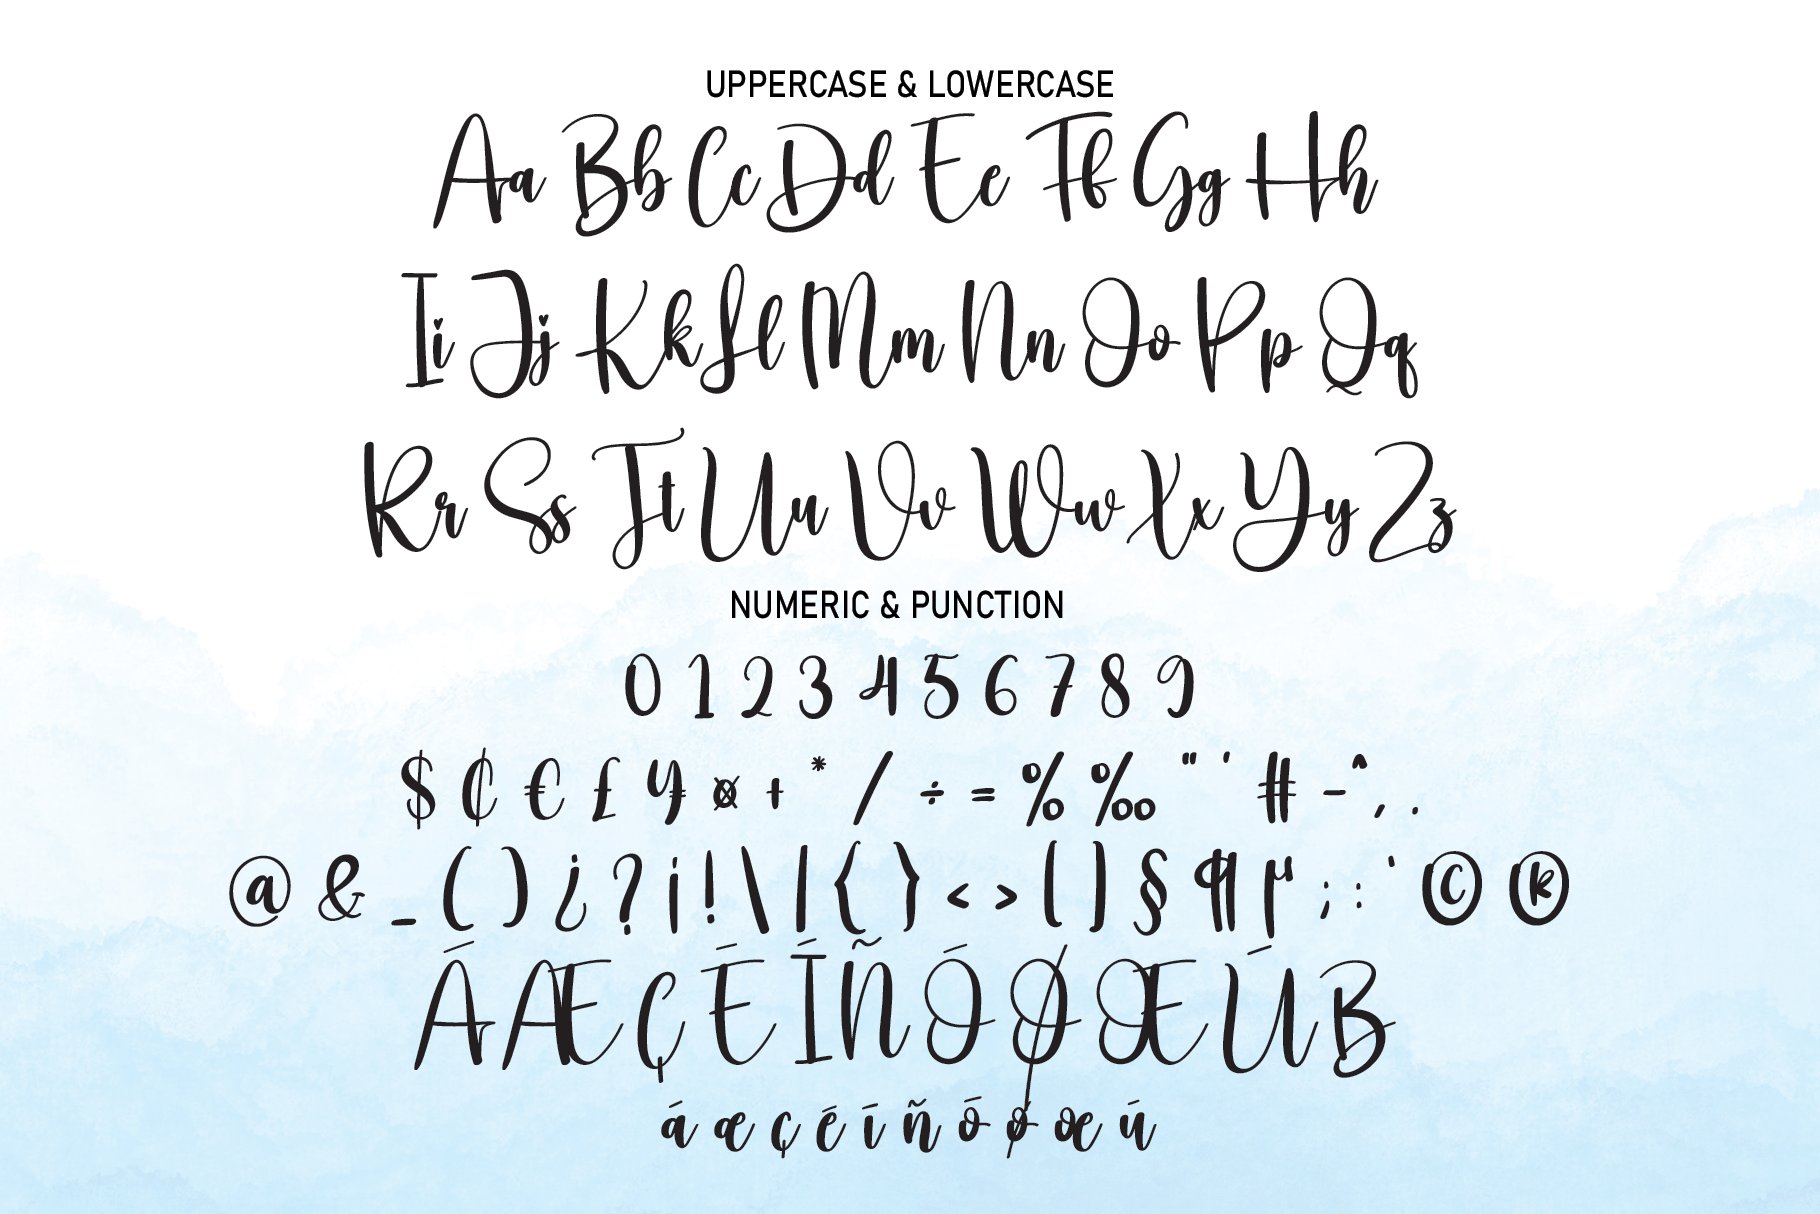 UPPERCASE & LOWERCASE
Aa Bb Cc Dd Ee Ff Gg Hh
Ii Jj Kk Ll Mm Nn Oo Pp Qq
Rr Ss Tt Uu Vv Ww Xx Yy Zz
NUMERIC & PUNCTION
0 1 2 3 4 5 6 7 8 9
$ ¢ € £ ¥ ¤ + * / ÷ = % ‰ " ' # - ^ , .
@ & _ ( ) ¿ ? ¡ ! \ | { } < > [ ] § ¶ µ ; : ' © ®
Á Æ Ç É Í Ñ Ó Ø Œ Ú B
á æ ç é í ñ ó ø œ ú